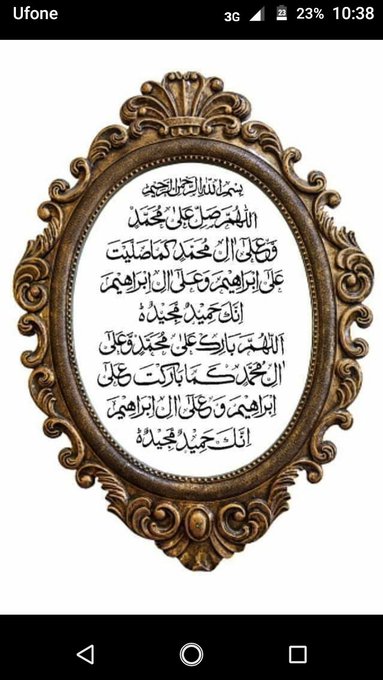 Ufone 3G 23 23% 10:38
بسم الله الرحمن الرحيم
اللهم صل على محمد
وعلى ال محمد كما صليت
على ابراهيم وعلى ال ابراهيم
انك حميد مجيد
اللهم بارك على محمد وعلى
ال محمد كما باركت على
ابراهيم وعلى ال ابراهيم
انك حميد مجيد